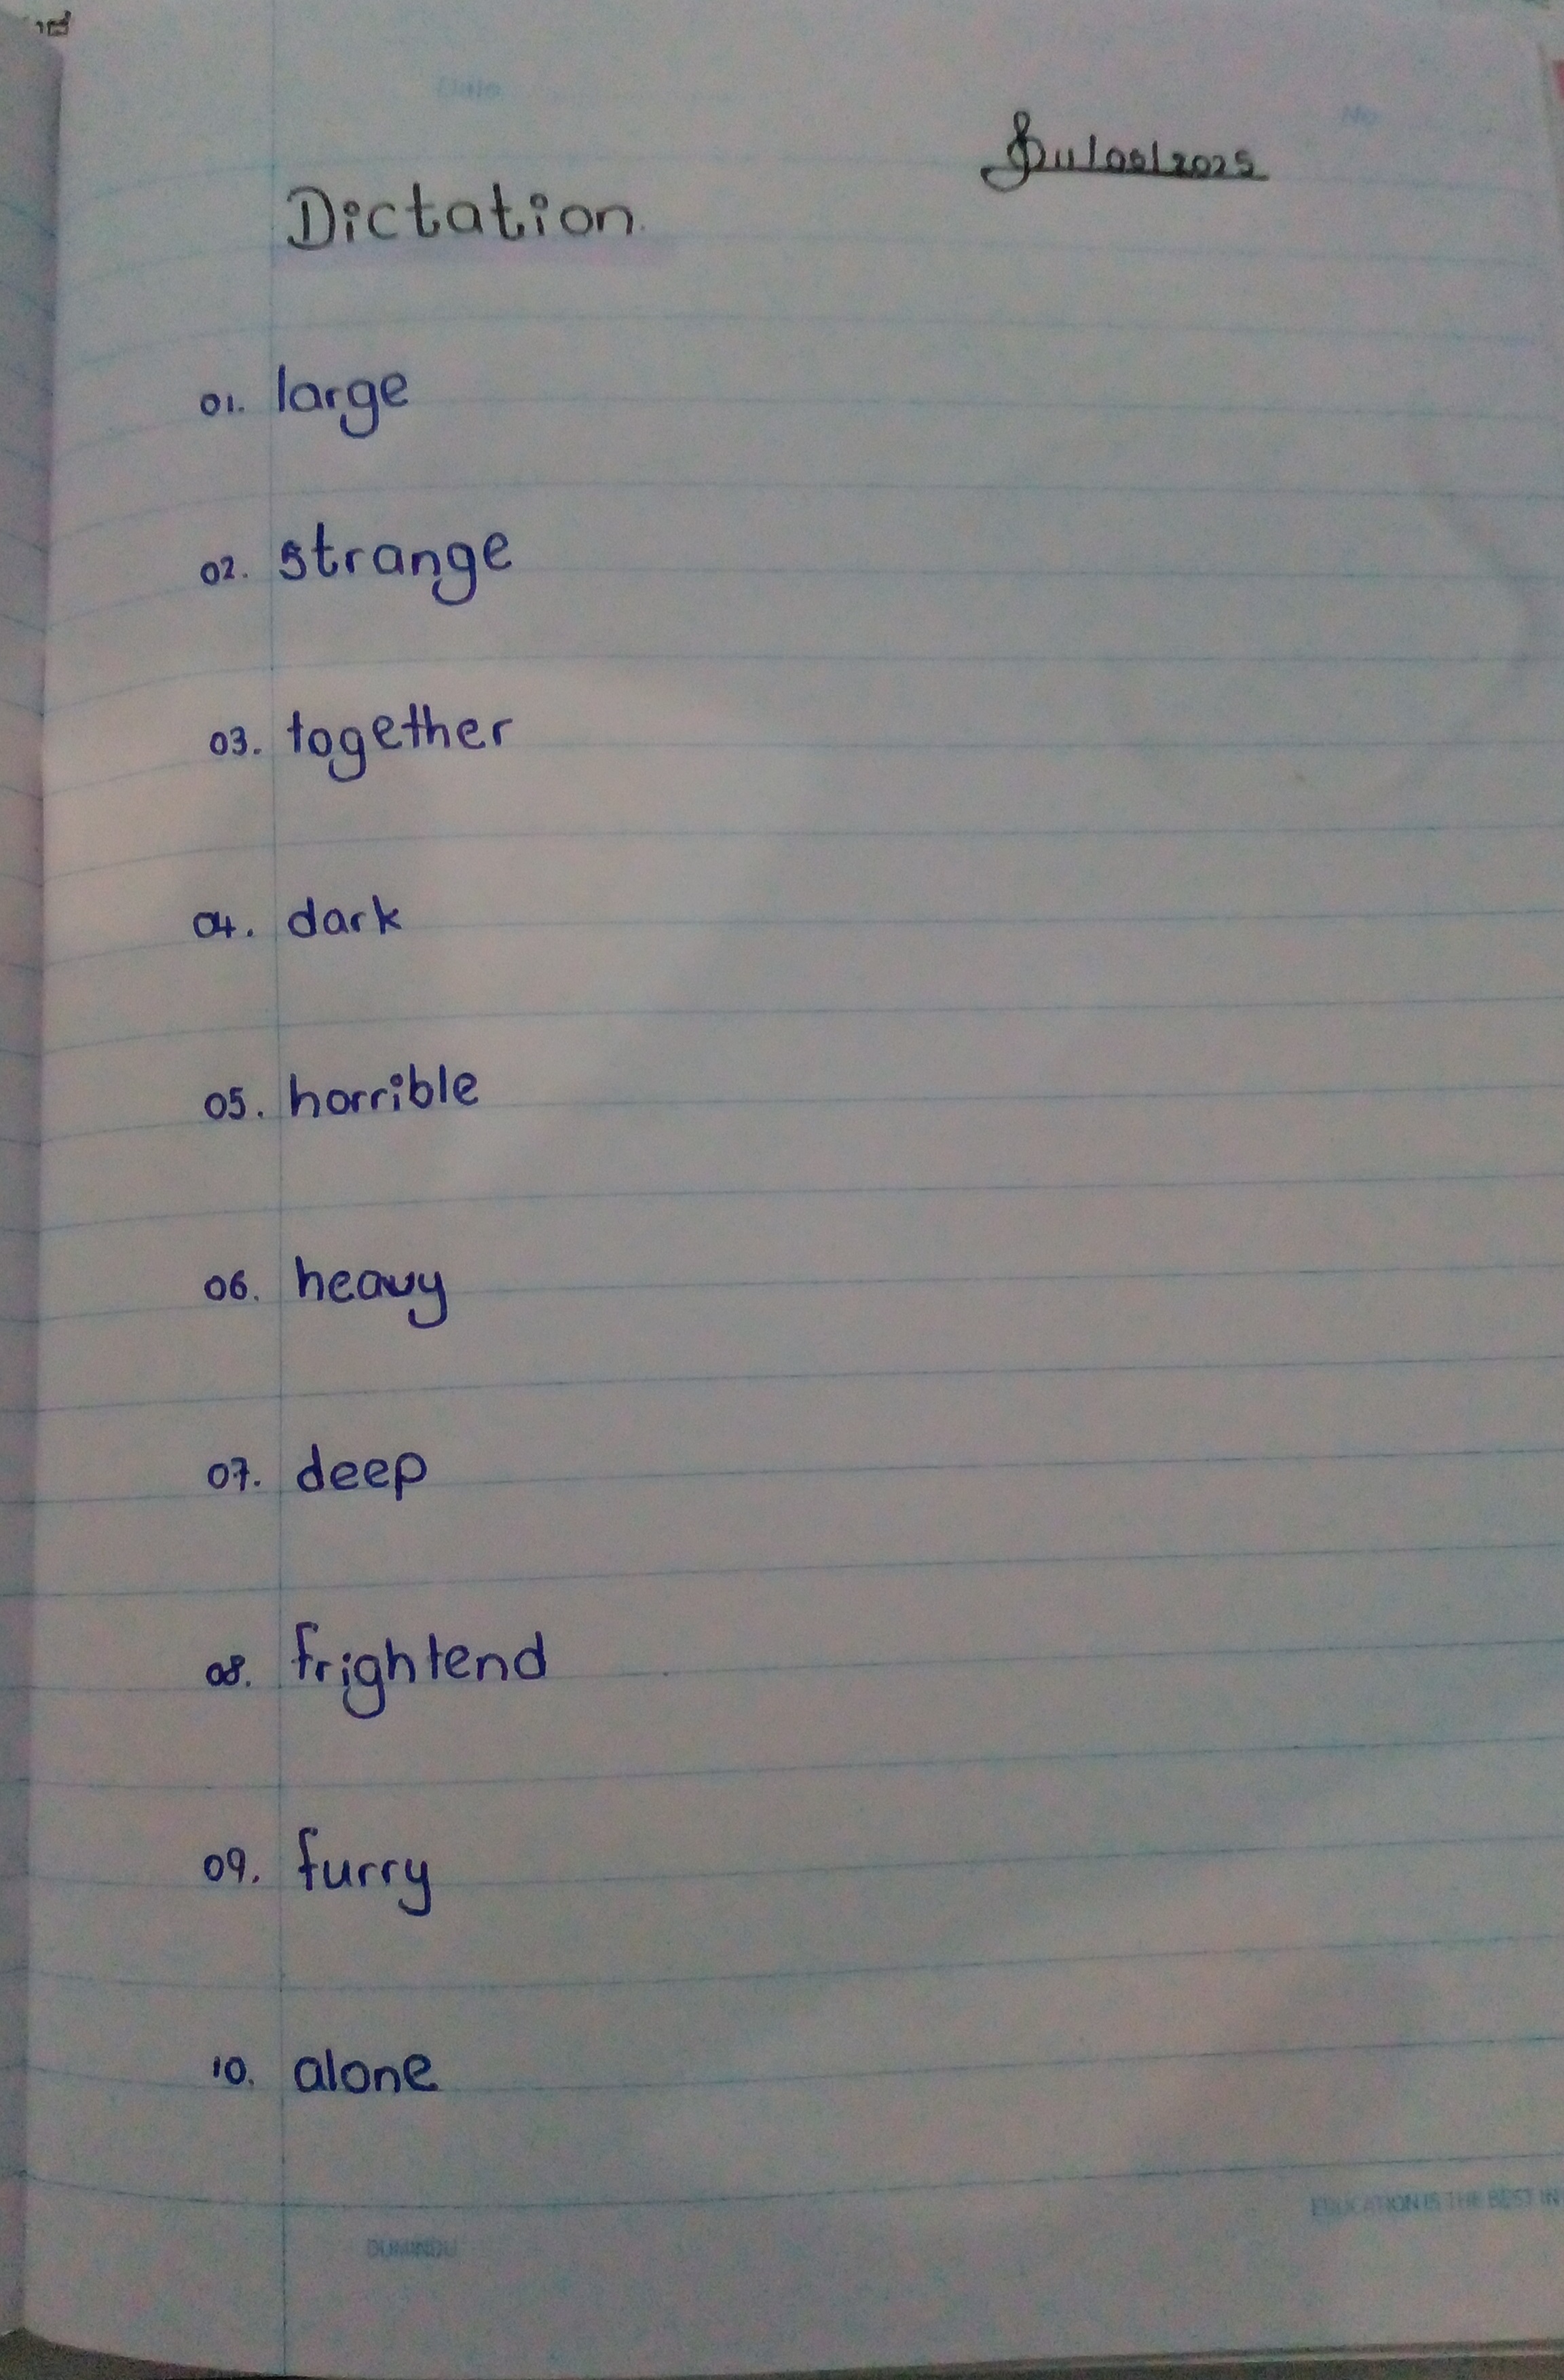 Date
No
11/05/2025
Dictation.
01. large
02. strange
03. together
04. dark
05. horrible
06. heavy
07. deep
08. frightend
09. furry
10. alone
EDUCATION IS THE BEST IN
DUMINDU